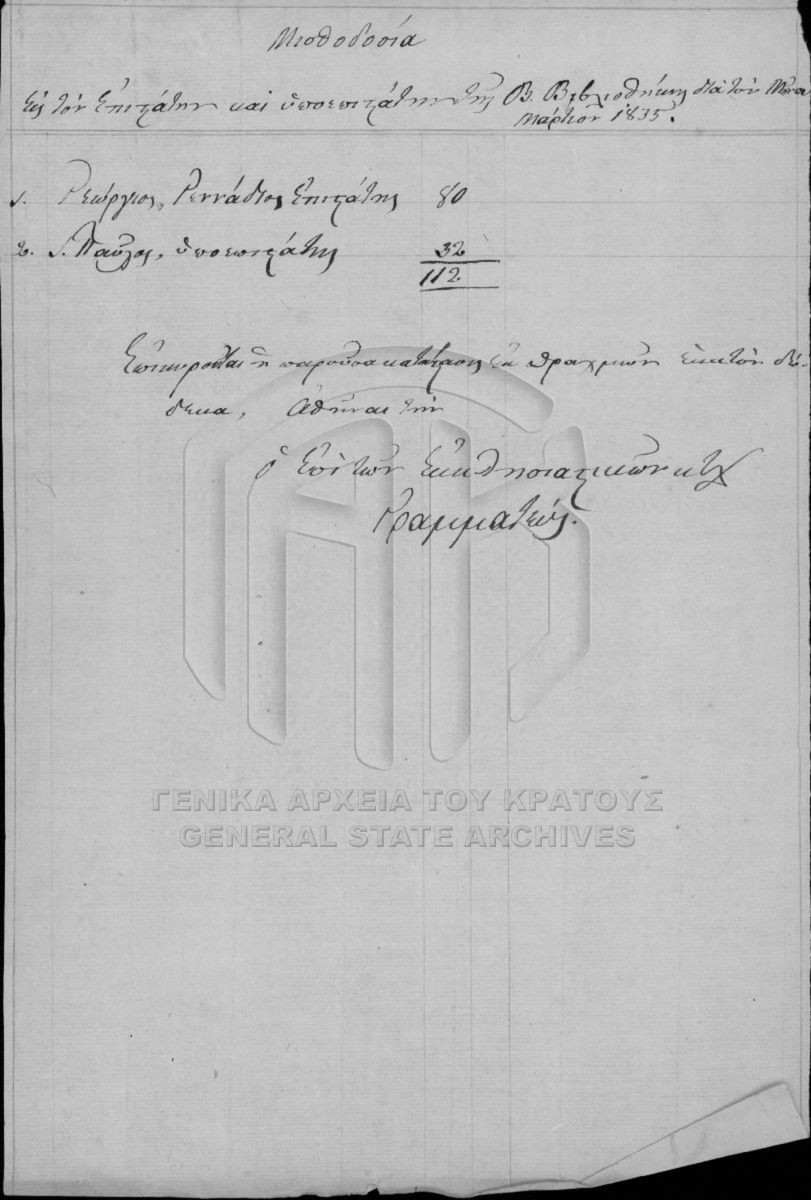 Μισθοδοσία
Εἰς τὸν Ἐπιστάτην καὶ ὑποεπιστάτην τῆς Β. Βιβλιοθήκης διὰ τὸν Μῆνα
Μάρτιον 1835.
1. Γεώργιος Γεννάδιος Ἐπιστάτης 80
2. Παῦλος, ὑποεπιστάτης 32
112
Ἐπικυροῦται ἡ παροῦσα κατάστασις ἐκ δραχμῶν ἑκατὸν δώ-
δεκα, Ἀθῆναι τὴν
ὁ Ἐπὶ τῶν Ἐκκλησιαστικῶν κτλ
Γραμματεύς.
ΓΕΝΙΚΑ ΑΡΧΕΙΑ ΤΟΥ ΚΡΑΤΟΥΣ
GENERAL STATE ARCHIVES